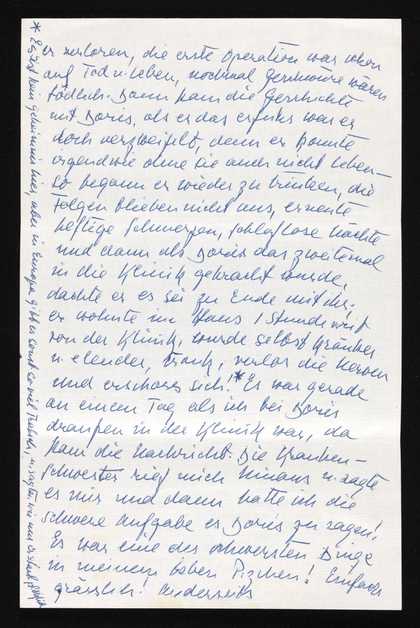 er verloren, die erste Operation war schon
auf Tod u. Leben, nochmal Geschwüre wären
tödlich. Dann kam die Geschichte
mit Doris, als er das erfuhr war er
doch verzweifelt, denn er konnte
irgendwie ohne sie auch nicht leben –
so begann er wieder zu trinken, die
Folgen blieben nicht aus, erneute
heftige Schmerzen, schlaflose Nächte
und dann als Doris das zweitemal
in die Klinik gebracht wurde,
dachte er es sei zu Ende mit ihr;
er wohnte im Haus 1 Stunde weit
von der Klinik, wurde selbst kränker
u. elender, trank, verlor die Nerven
und erschoss sich! * Es war gerade
an einem Tag als ich bei Doris
draußen in der Klinik war, da
kam die Nachricht. Die Kranken-
schwester rief mich hinaus u. sagte
es mir und dann hatte ich die
schwere Aufgabe es Doris zu sagen!
Es war eine der schwersten Dinge
in meinem Leben! Einfach
grässlich! Anderseits
* Es ist kein Geheimnis hier, aber in Europa gibt es sonst so viel Tratsch, u. sagten wir nur er starb